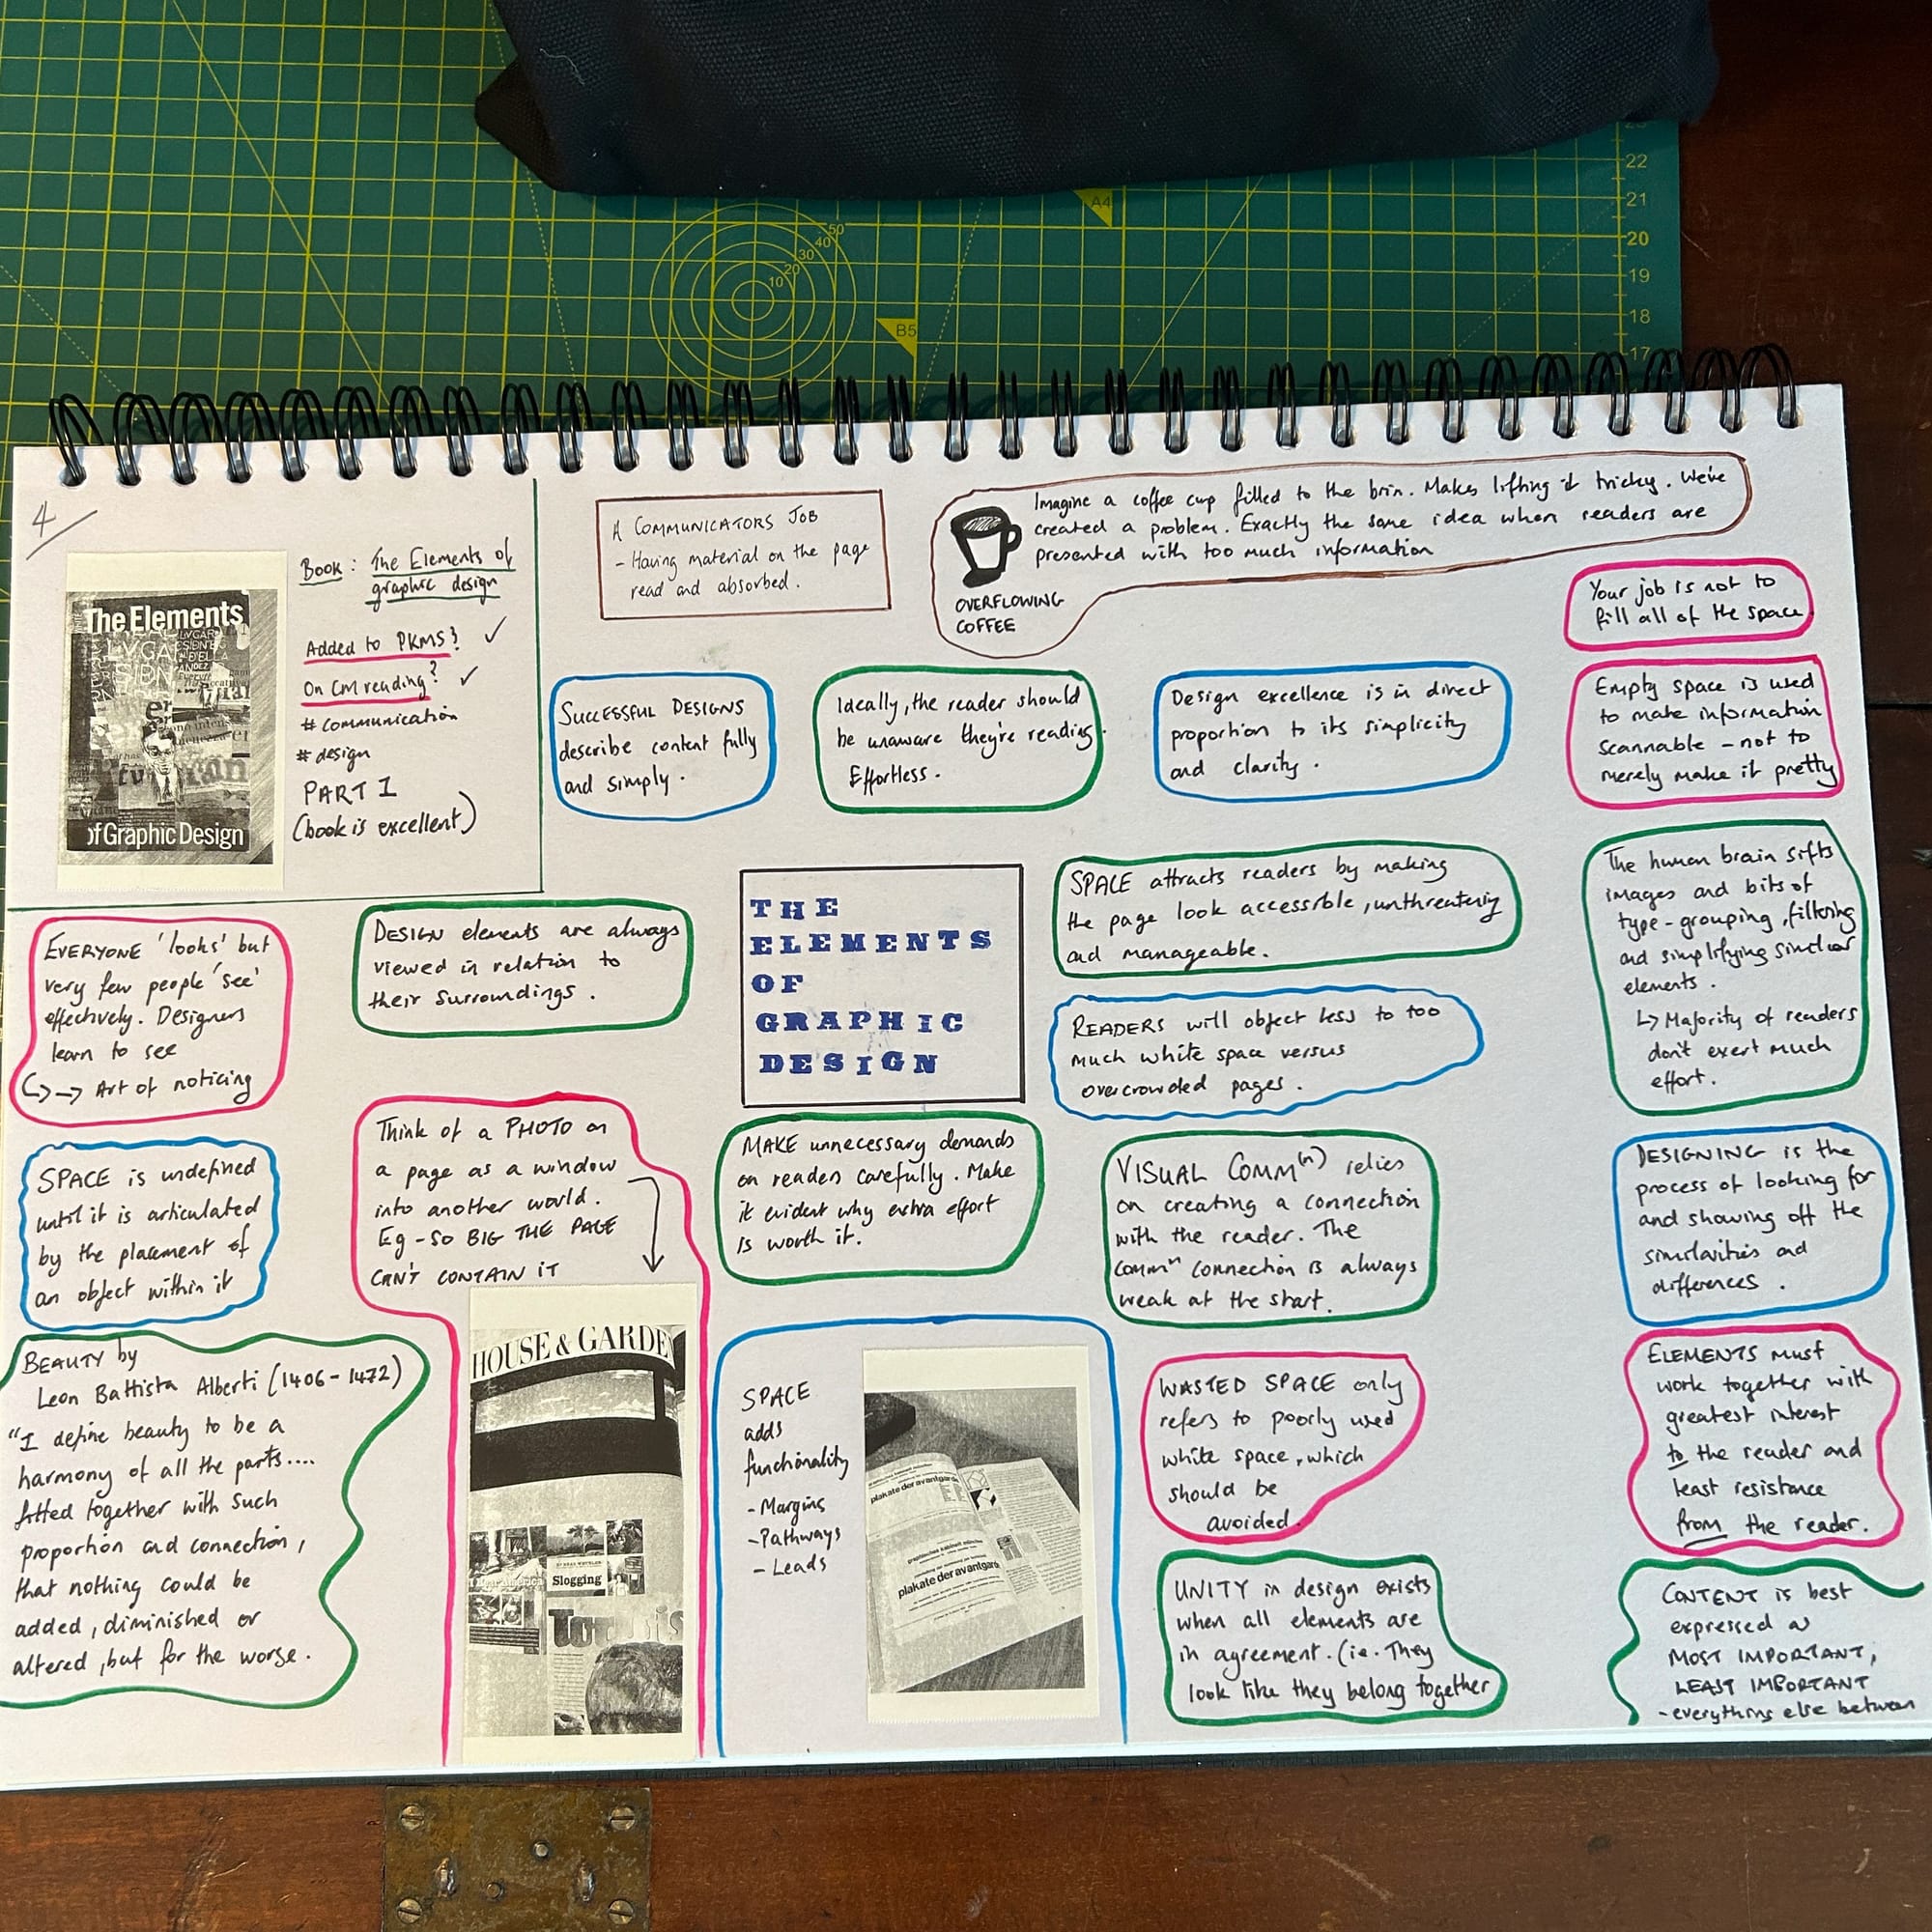 A4
50
40
30
20
10
B5
22
21
20
19
18
17
4
The Elements
of Graphic Design
Book: The Elements of
graphic design
Added to PKMS? ✓
On CM reading? ✓
# communication
# design
PART 1
(book is excellent)
A COMMUNICATORS JOB
- Having material on the page
read and absorbed.
OVERFLOWING
COFFEE
Imagine a coffee cup filled to the brim. Makes lifting it tricky. We've
created a problem. Exactly the same idea when readers are
presented with too much information
Your job is not to
fill all of the space
SUCCESSFUL DESIGNS
describe content fully
and simply.
Ideally, the reader should
be unaware they're reading.
Effortless.
Design excellence is in direct
proportion to its simplicity
and clarity.
Empty space is used
to make information
scannable - not to
merely make it pretty
THE
ELEMENTS
OF
GRAPHIC
DESIGN
SPACE attracts readers by making
the page look accessible, unthreatening
and manageable.
The human brain sifts
images and bits of
type - grouping, filtering
and simplifying similar
elements.
↳ Majority of readers
don't exert much
effort.
EVERYONE 'looks' but
very few people 'see'
effectively. Designers
learn to see
↳ → Art of noticing
DESIGN elements are always
viewed in relation to
their surroundings.
READERS will object less to too
much white space versus
overcrowded pages.
SPACE is undefined
until it is articulated
by the placement of
an object within it
Think of a PHOTO on
a page as a window
into another world.
Eg - SO BIG THE PAGE
CAN'T CONTAIN IT
MAKE unnecessary demands
on readers carefully. Make
it evident why extra effort
is worth it.
VISUAL COMM(n) relies
on creating a connection
with the reader. The
comm^n connection is always
weak at the start.
DESIGNING is the
process of looking for
and showing off the
similarities and
differences.
BEAUTY by
Leon Battista Alberti (1406-1472)
"I define beauty to be a
harmony of all the parts....
fitted together with such
proportion and connection,
that nothing could be
added, diminished or
altered, but for the worse.
HOUSE & GARDE
Slogging
SPACE
adds
functionality
- Margins
- Pathways
- Leads
plakate der avantgarde
plakate der avantgarde
WASTED SPACE only
refers to poorly used
white space, which
should be
avoided.
ELEMENTS must
work together with
greatest interest
to the reader and
least resistance
from the reader.
UNITY in design exists
when all elements are
in agreement. (ie. They
look like they belong together
CONTENT is best
expressed as
MOST IMPORTANT,
LEAST IMPORTANT
- everything else between